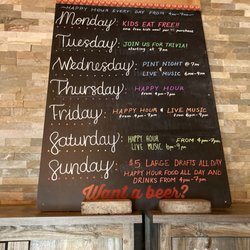 HAPPY HOUR EVERY DAY FROM 4pm-7pm
Monday: KIDS EAT FREE!!
one free kids meal per
Tuesday: JOIN US FOR TRIVIA!
starting at 7pm
Wednesday: PINT NIGHT @
LIVE MUSIC 6pm-9pm
Thursday: HAPPY HOUR
from 4pm-7pm
Friday: HAPPY HOUR & LIVE MUSIC
Saturday: HAPPY HOUR FROM 4pm-7pm
LIVE MUSIC 6pm-9pm
Sunday: $5 LARGE DRAFTS ALL DAY
HAPPY HOUR FOOD ALL DAY AND
DRINKS FROM 4pm-7pm
Want a beer?